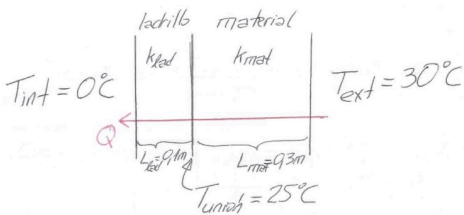 ladrillo material
k_lad k_mat
T_int = 0°C
T_ext = 30°C
Q
L_lad = 0,1m L_mat = 0,3m
T_unión = 25°C